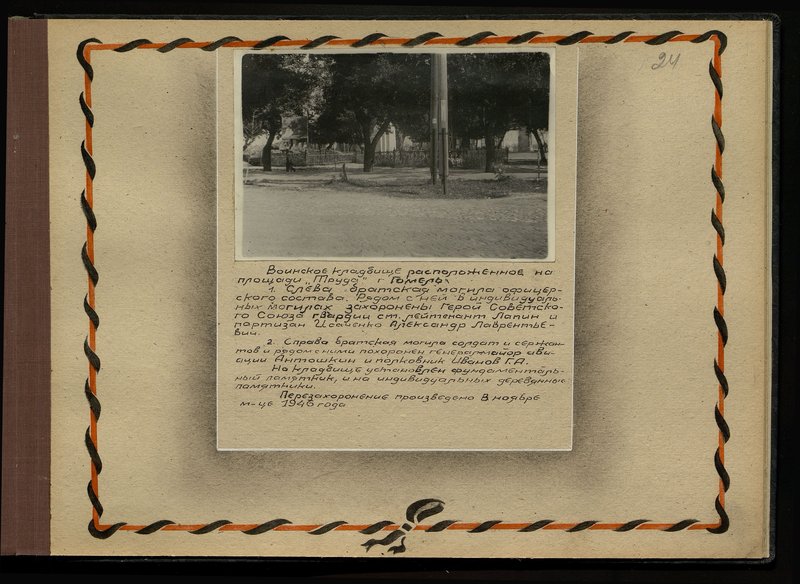 24
Воинское кладбище расположенное на
площади „Труда" г Гомель.
1. Слева братская могила офицер-
ского состава. Рядом с ней в индивидуаль-
ных могилах захоронены Герой Советско-
го Союза гвардии ст. лейтенант Лапин и
партизан Исаченко Александр Лаврентье-
вич.
2. Справа братская могила солдат и сержан-
тов и рядом с ними похоронен генерал-майор ави-
ации Антошкин и полковник Иванов Г.А.
На кладбище установлен фундаменталь-
ный памятник, и на индивидуальных деревянные
памятники.
Перезахоронение произведено в ноябре
м-це 1946 года